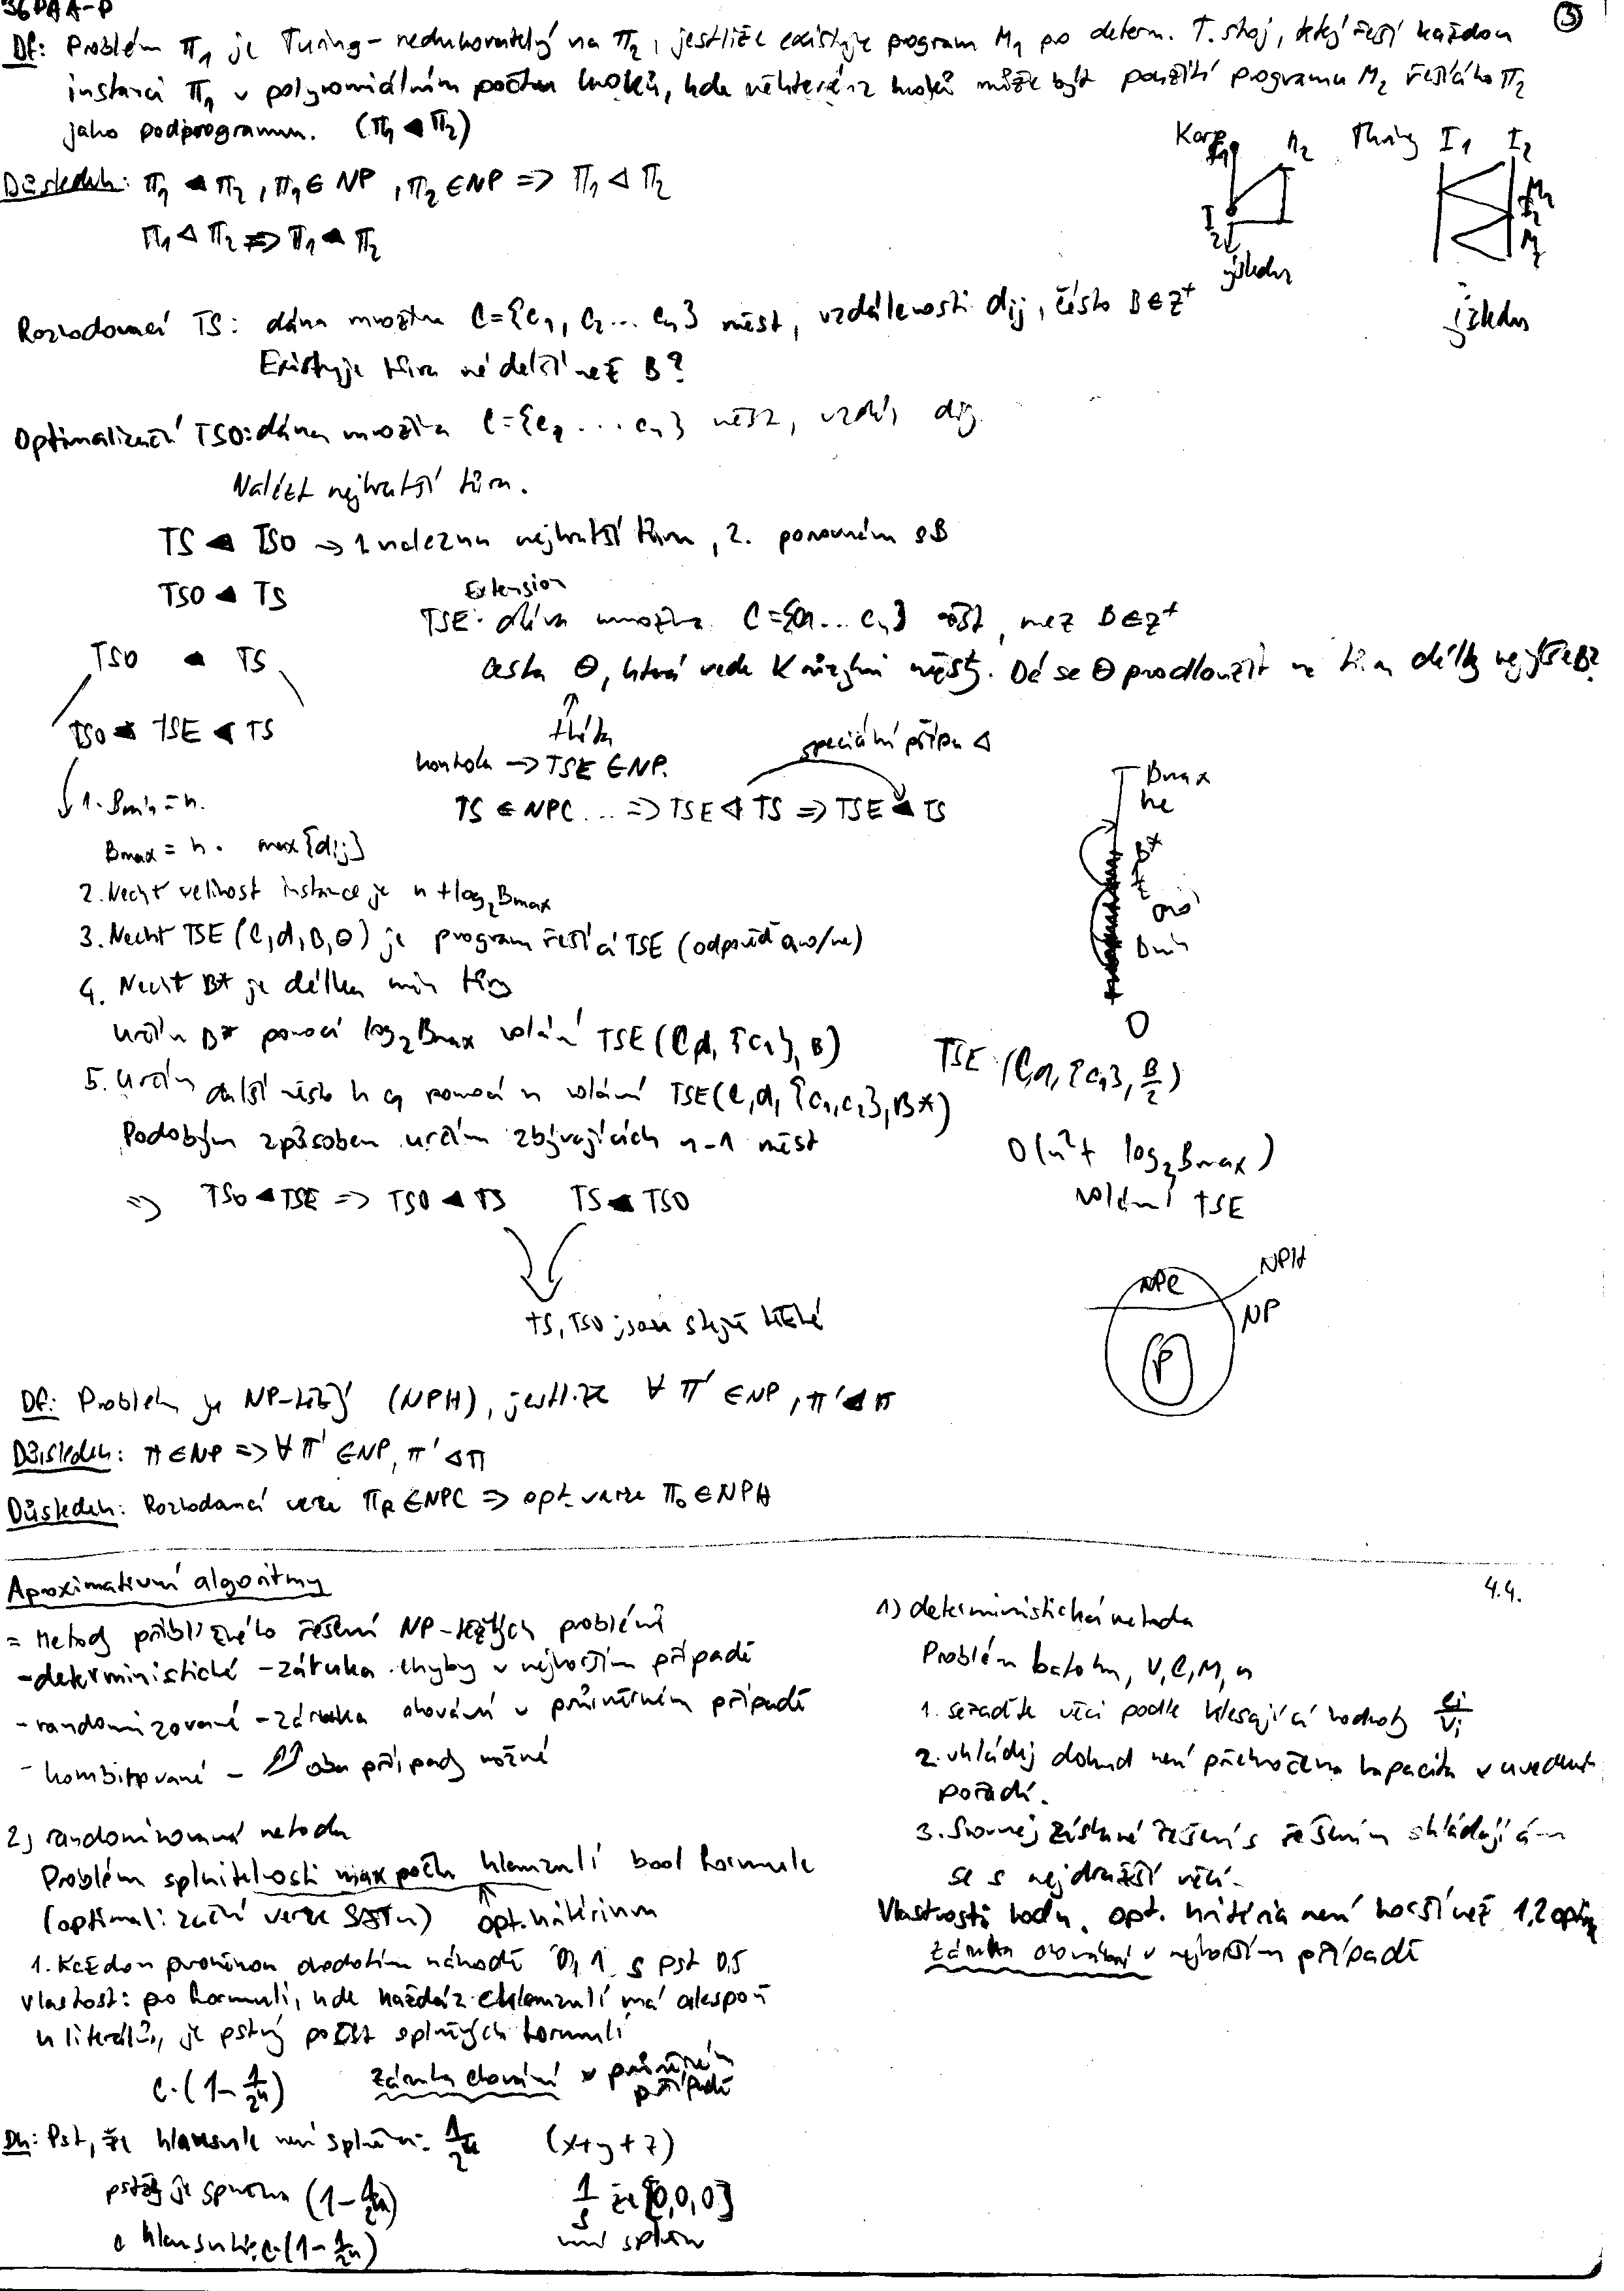 36PAA-P
③
Df: Problém Π1 je Turing-redukovatelný na Π2, jestliže existuje program M1 po determ. T. stroj, který řeší každou
instanci Π1 v polynomiálním počtu kroků, kde některé z kroků může být použití programu M2 řešícího Π2
jako podprogramu. (Π1 ◀ Π2)
Důsledek: Π1 ◀ Π2, Π1 ∈ NP, Π2 ∈ NP => Π1 ◁ Π2
Π1 ◁ Π2 => Π1 ◀ Π2
Karp I1 Π2
I2
výsledek
Turing I1 I2
M2
I2
M2
Rozhodovací TS: dána množina C={c1, c2 ... cn} měst, vzdálenosti dij, číslo B∈Z+
Existuje túra ne delší než B?
Optimalizační TSO: dána množina C={c1 ... cn} měst, vzdál. dij
Nalézt nejkratší túru.
TS ◀ TSO -> 1. naleznu nejkratší túru, 2. porovnám s B
TSO ◀ TS
Extension
TSE: dána množina C={c1 ... cn} měst, mez B∈Z+
cesta Θ, která vede K různými městy. Dá se Θ prodloužit na túru délky nejvýše B?
TSO ◀ TS
TSO ◀ TSE ◀ TS
kontrola -> TSE ∈ NP.
speciální případ ◁
TS ∈ NPC ... => TSE ◁ TS => TSE ◀ TS
1. Bmin = n.
Bmax = n . max{dij}
2. Nechť velikost instance je n + log2 Bmax
3. Nechť TSE (C,d,B,Θ) je program řešící TSE (odpověď ano/ne)
4. Nechť B* je délka min túry
určím B* pomocí log2 Bmax volání TSE (C,d, {c1}, B)
5. Určím další město k c1 pomocí n volání TSE(C,d, {c1,c2}, B*)
Podobným způsobem určím zbývajících n-1 měst
Bmax
ne
B*
ano
Bmin
0
TSE (C,d, {c1}, B/2)
O(n²+ log2 Bmax)
volání TSE
=> TSO ◀ TSE => TSO ◀ TS TS ◀ TSO
TS, TSO jsou stejně těžké
NPC
NPH
NP
P
Df: Problém je NP-těžký (NPH), jestliže ∀ Π' ∈ NP, Π' ◀ Π
Důsledek: Π ∈ NP => ∀ Π' ∈ NP, Π' ◁ Π
Důsledek: Rozhodovací verze ΠR ∈ NPC => opt. verze ΠO ∈ NPH
Aproximativní algoritmy
4.4.
= Metody přibližného řešení NP-težkých problémů
- deterministické - záruka chyby v nejhorším případě
- randomizované - záruka chování v průměrném případě
- kombinované - oba případy možné
1) deterministická metoda
Problém batohu, V, C, M, n
1. seřaďte věci podle klesající hodnoty ci/vi
2. vkládej dokud není překročena kapacita v uvedeném
pořadí.
3. Srovnej získané řešení s řešením skládajícím
se s nejdražší věcí.
Vlastnosti hodn. opt. kritéria není horší než 1/2 optima
záruka chování v nejhorším případě
2) randomizovaná metoda
Problém splnitelnosti max počtu klauzulí bool formule
(optimalizační verze SATu) opt. kritérium
1. Každou proměnnou ohodnotím náhodě 0,1 s pst 0,5
vlastnost: po formuli, kde každá z c klauzulí má alespoň
k literálů, je pstný počet splněných formulí
c.(1-1/2^k) záruka chování v průměrném
případě
Dk: Pst, že klausule není splněna: 1/2^k (x+y+z)
pst že je splněna (1-1/2^k) 1/8 že [0,0,0]
c klausulí: c.(1-1/2^k) není splněn